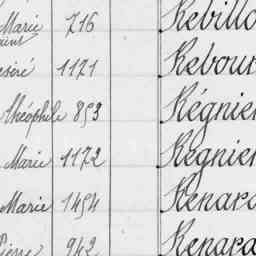 Marie 716 Rebillo
saint
éséré 1171 Rebour
Théophile 853 Régnier
Marie 1172 Regnier
Marie 1454 Renard
942 Renard